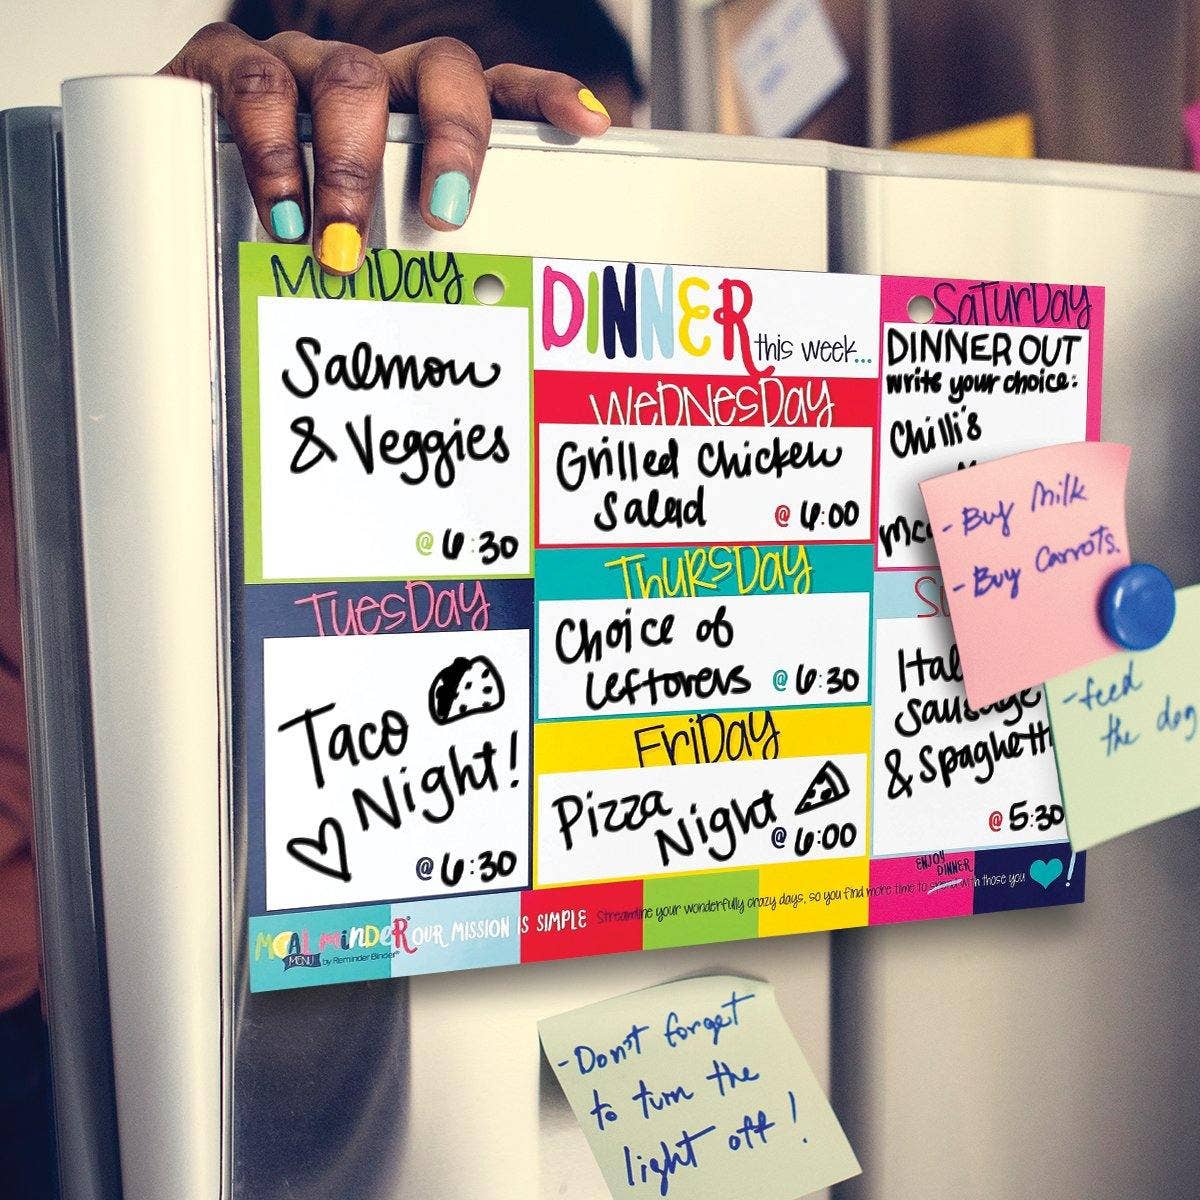 MonDay
Salmon
& Veggies
@ 6:30
TuesDay
Taco
Night!
@ 6:30
DINNER
this week...
WeDNesDay
Grilled Chicken
Salad
@ 6:00
ThursDay
Choice of
Leftovers @ 6:30
FriDay
Pizza
Night
@ 6:00
SaturDay
DINNER OUT
write your choice:
Chilli's
Sausage
& Spaghetti
@ 5:30
- Buy Milk
- Buy Carrots.
- feed
the dog
MEAL minDeR
MENU by Reminder Binder®
OUR MISSION IS SIMPLE Streamline your wonderfully crazy days, so you find more time to spend with those you !
ENJOY
DINNER
- Don't forget
to turn the
light off!